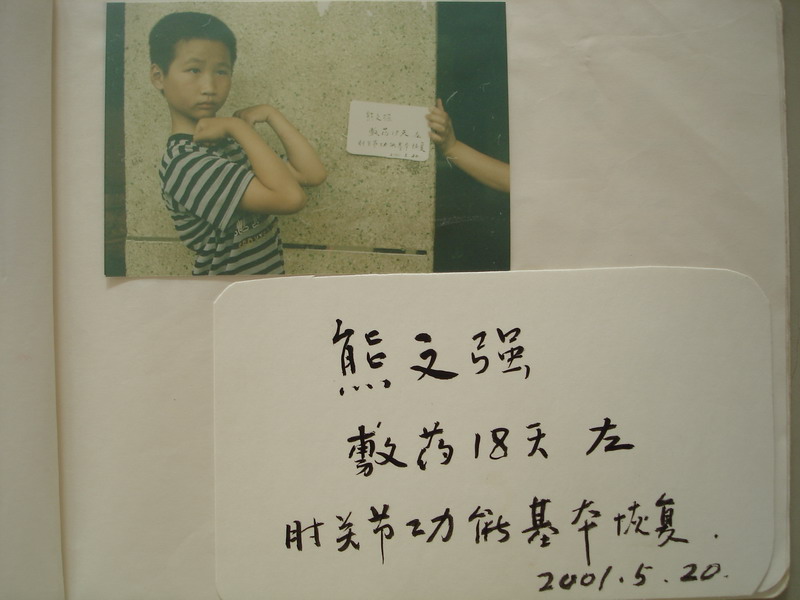 熊文强
敷药18天 左
肘关节功能基本恢复.
2001.5.20.
熊文强
敷药18天 左
肘关节功能基本恢复
2001.5.20